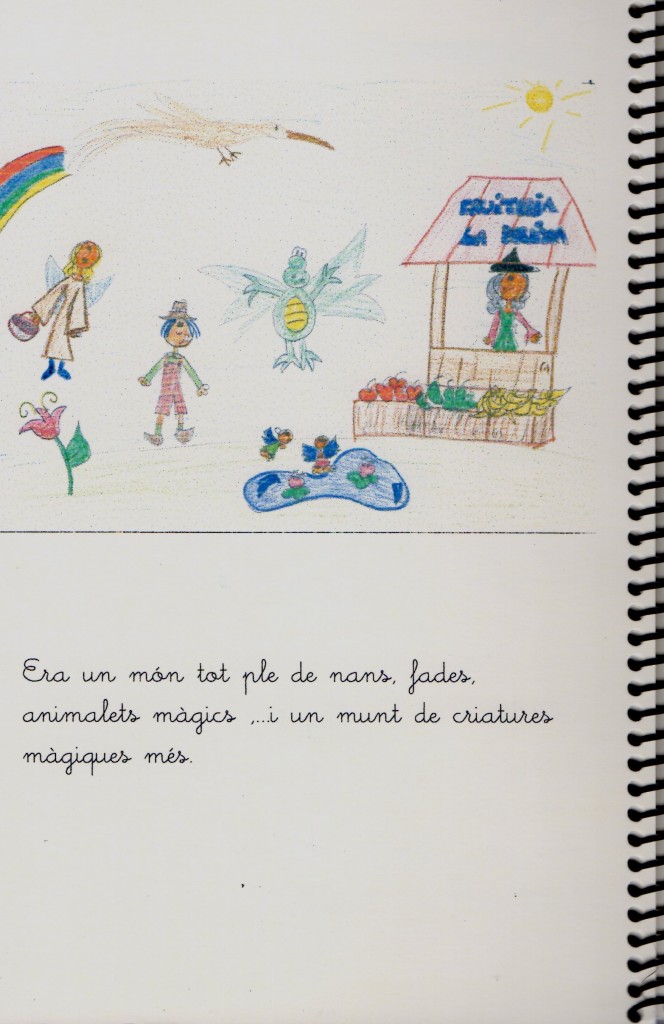 FRUITERIA
LA
Era un món tot ple de nans, fades,
animalets màgics ,...i un munt de criatures
màgiques més.